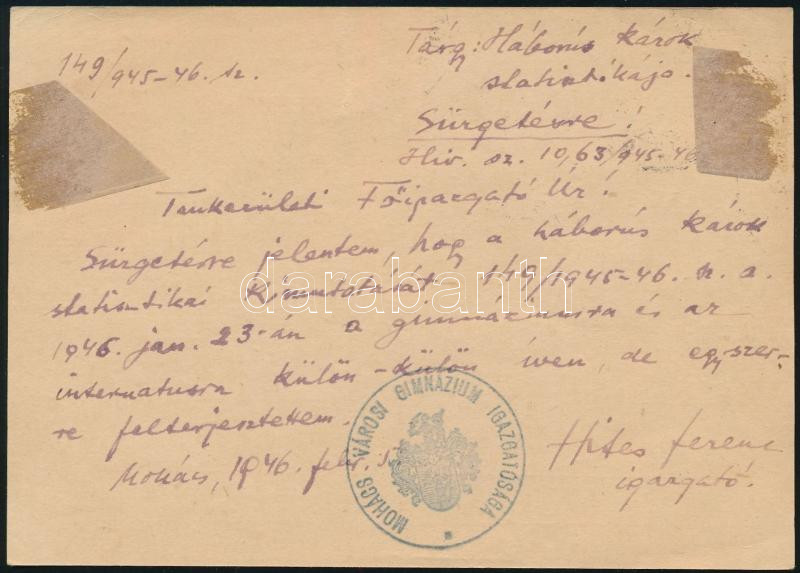 149/945-46. sz.
Tárg: Háborús károk
statisztikája.
Sürgetésre!
Hiv. sz. 10,63/945-46
Tankerületi Főigazgató Úr!
Sürgetésre jelentem, hog a háborús károk
statisztikai kimutatását 149/1945-46. sz. a.
1946. jan. 23-án a gimnáziumra és az
internátusra külön-külön íven, de egyszer-
re felterjesztettem.
Mohács, 1946. febr. 5
Hites Ferenc
igazgató.
MOHÁCS VÁROSI GIMNÁZIUM IGAZGATÓSÁGA
darabanth